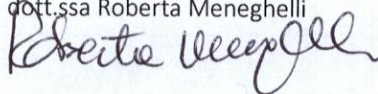 dott.ssa Roberta Meneghelli
Roberta Meneghelli